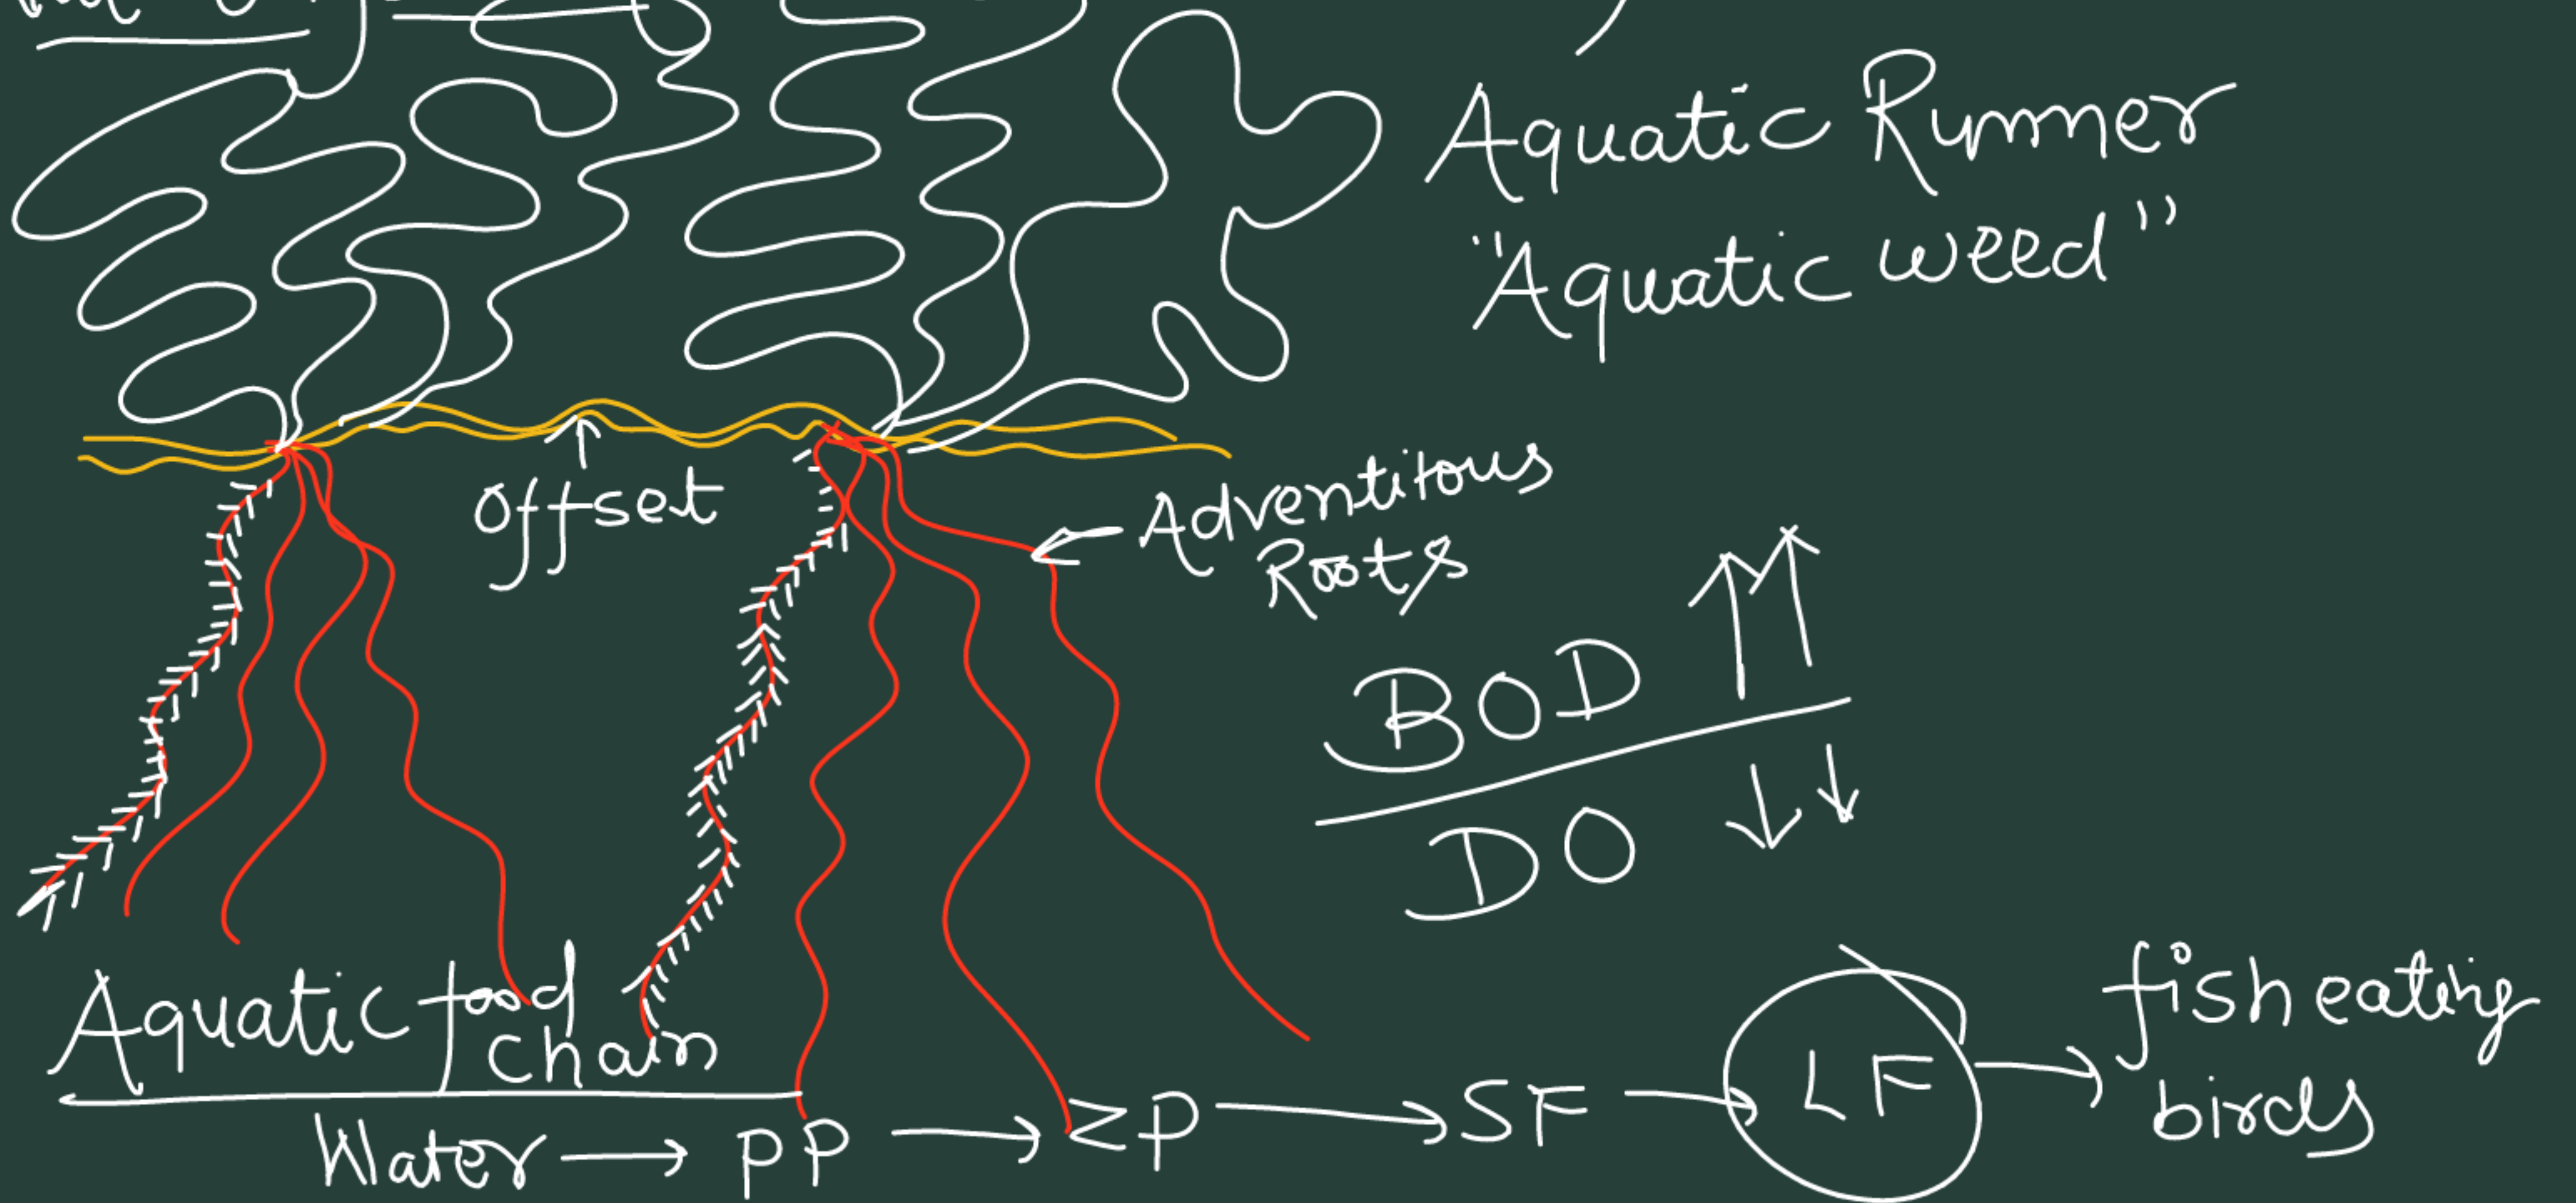 Aquatic Runner
"Aquatic weed"
Offset
Adventitous
Roots
BOD ↑↑
DO ↓↓
Aquatic food
chain
Water → PP → ZP → SF → LF → fish eating
birds